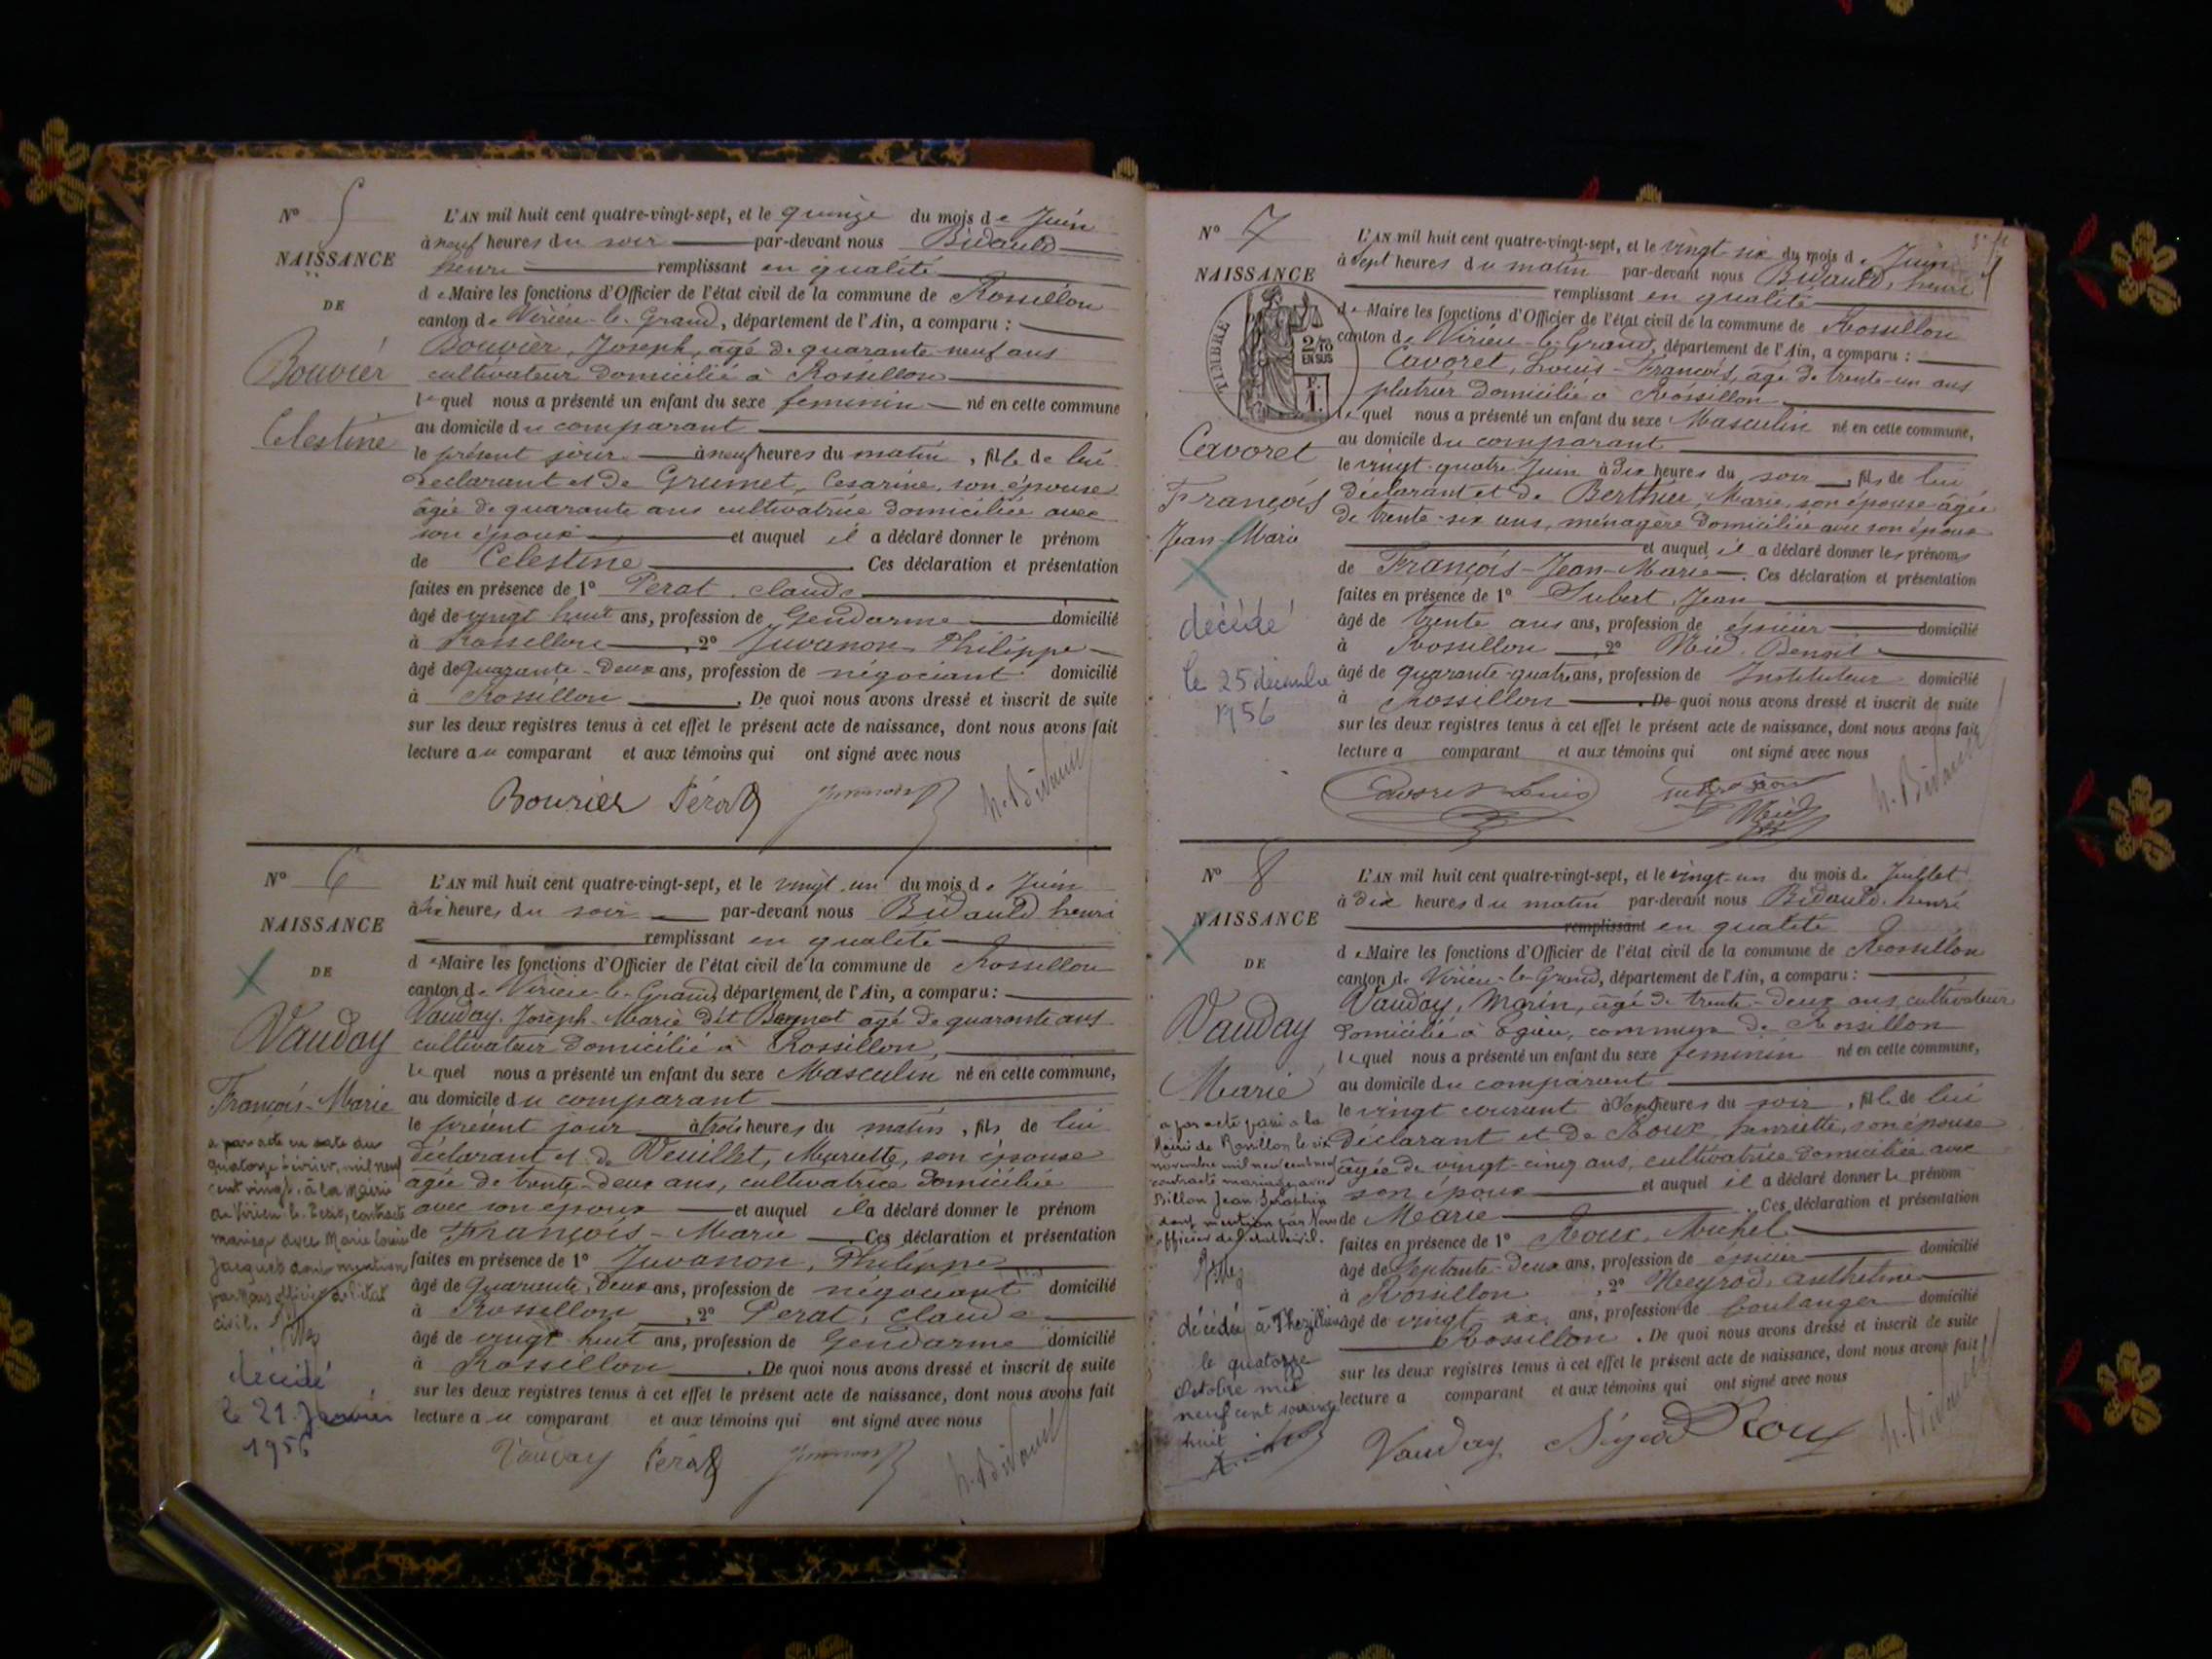 N° 5
NAISSANCE
DE
Bouvier
Celestine
L'AN mil huit cent quatre-vingt-sept, et le quinze du mois de Juin
à neuf heures du soir par-devant nous Bidauld
henri remplissant en qualité
de Maire les fonctions d'Officier de l'état civil de la commune de Rossillon
canton de Virieu-le-Grand, département de l'Ain, a comparu :
Bouvier, Joseph, âgé de quarante-neuf ans
cultivateur domicilié à Rossillon
lequel nous a présenté un enfant du sexe feminin né en cette commune
au domicile du comparant
le présent jour à neuf heures du matin, fille de lui
déclarant et de Grumet, Cesarine, son épouse
âgée de quarante ans cultivatrice domiciliée avec
son époux et auquel il a déclaré donner le prénom
de Celestine. Ces déclaration et présentation
faites en présence de 1° Perat, claude
âgé de vingt huit ans, profession de Gendarme domicilié
à Rossillon, 2° Juvanon, Philippe
âgé de quarante-deux ans, profession de négociant domicilié
à Rossillon. De quoi nous avons dressé et inscrit de suite
sur les deux registres tenus à cet effet le présent acte de naissance, dont nous avons fait
lecture au comparant et aux témoins qui ont signé avec nous
Bouvier Pérat h. Bidauld
N° 6
NAISSANCE
DE
Vauday
François-Marie
a par acte en date du
quatorze février, mil neuf
cent vingt, à la Mairie
de Virieu-le-Petit, contracté
mariage avec Marie Louise
Jacquet dont mention
par Nous officier de l'état
civil.
décédé
le 21 Janvier
1956
L'AN mil huit cent quatre-vingt-sept, et le vingt-un du mois de Juin
à six heures du soir par-devant nous Bidauld henri
remplissant en qualité
de Maire les fonctions d'Officier de l'état civil de la commune de Rossillon
canton de Virieu-le-Grand, département de l'Ain, a comparu :
Vauday, Joseph-Marie dit âgé de quarante ans
cultivateur domicilié à Rossillon,
lequel nous a présenté un enfant du sexe Masculin né en cette commune,
au domicile du comparant
le présent jour à trois heures du matin, fils de lui
déclarant et de Veuillet, Mariette, son épouse
âgée de trente-deux ans, cultivatrice domiciliée
avec son époux et auquel il a déclaré donner le prénom
de François-Marie. Ces déclaration et présentation
faites en présence de 1° Juvanon, Philippe
âgé de Quarante, deux ans, profession de négociant domicilié
à Rossillon, 2° Perat, Claude
âgé de vingt huit ans, profession de Gendarme domicilié
à Rossillon. De quoi nous avons dressé et inscrit de suite
sur les deux registres tenus à cet effet le présent acte de naissance, dont nous avons fait
lecture au comparant et aux témoins qui ont signé avec nous
Vauday Pérat h. Bidauld
N° 7
NAISSANCE
TIMBRE
2/10
EN SUS
F.
1.
Cavoret
François
Jean-Marie
décédé
le 25 décembre
1956
L'AN mil huit cent quatre-vingt-sept, et le vingt six du mois de Juin
à sept heures du matin par-devant nous Bidauld, henri
remplissant en qualité
de Maire les fonctions d'Officier de l'état civil de la commune de Rossillon
canton de Virieu-le-Grand, département de l'Ain, a comparu :
Cavoret, Louis-François, âgé de trente-un ans
platrier domicilié à Rossillon
lequel nous a présenté un enfant du sexe Masculin né en cette commune,
au domicile du comparant
le vingt-quatre Juin à dix heures du soir, fils de lui
déclarant et de Berthier, Marie, son épouse âgée
de trente-six ans, ménagère domiciliée avec son époux
et auquel il a déclaré donner les prénoms
de François-Jean-Marie. Ces déclaration et présentation
faites en présence de 1° Jubert, Jean
âgé de trente ans ans, profession de épicier domicilié
à Rossillon, 2° Benoit
âgé de quarante-quatre ans, profession de Instituteur domicilié
à Rossillon. De quoi nous avons dressé et inscrit de suite
sur les deux registres tenus à cet effet le présent acte de naissance, dont nous avons fait
lecture a comparant et aux témoins qui ont signé avec nous
Cavoret Louis h. Bidauld
N° 8
NAISSANCE
DE
Vauday
Marie
a par acte passé à la
Mairie de Rossillon le six
novembre mil neuf cent neuf
contracté mariage avec
Billon Jean
dont mention par Nous
officier de l'état civil.
décédée à Thézillieu
le quatorze
Octobre mil
neuf cent soixante
huit
L'AN mil huit cent quatre-vingt-sept, et le vingt-un du mois de Juillet
à dix heures du matin par-devant nous Bidauld henri
remplissant en qualité
de Maire les fonctions d'Officier de l'état civil de la commune de Rossillon
canton de Virieu-le-Grand, département de l'Ain, a comparu :
Vauday, Marin, âgé de trente-deux ans, cultivateur
domicilié à Egieu, commune de Rossillon
lequel nous a présenté un enfant du sexe feminin né en cette commune,
au domicile du comparant
le vingt courant à sept heures du soir, fille de lui
déclarant et de Roux, henriette, son épouse
âgée de vingt-cinq ans, cultivatrice domiciliée avec
son époux et auquel il a déclaré donner le prénom
de Marie. Ces déclaration et présentation
faites en présence de 1° Roux, Michel
âgé de Septante-deux ans, profession de épicier domicilié
à Rossillon, 2° Neyrod, anthelme
âgé de vingt-six ans, profession de boulanger domicilié
Rossillon. De quoi nous avons dressé et inscrit de suite
sur les deux registres tenus à cet effet le présent acte de naissance, dont nous avons fait
lecture a comparant et aux témoins qui ont signé avec nous
Vauday Roux h. Bidauld